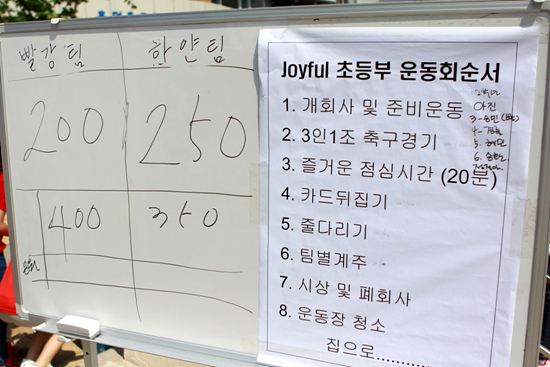 빨강팀 하얀팀
200 250
400 350
Joyful 초등부 운동회순서
1. 개회사 및 준비운동
2. 3인1조 축구경기
3. 즐거운 점심시간 (20분)
4. 카드뒤집기
5. 줄다리기
6. 팀별계주
7. 시상 및 폐회사
8. 운동장 청소
집으로............